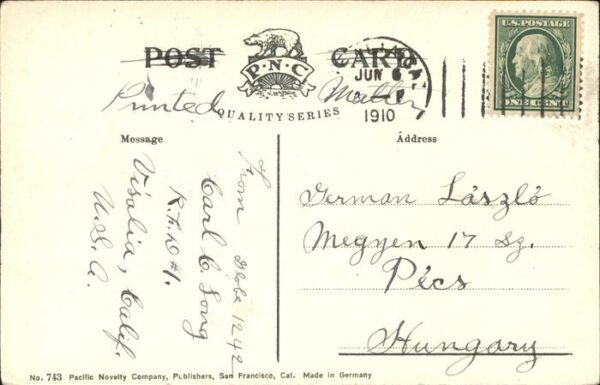 POST CARD
P.N.C
QUALITY SERIES
Printed Matter
JUN 6
1910
U.S. POSTAGE
ONE CENT
Message
Address
From Globe 1242
Carl C Long
R.F.D #1.
Visalia, Calif.
U.S.A.
German László
Megyen 17 Sz.
Pécs
Hungary
No. 743 Pacific Novelty Company, Publishers, San Francisco, Cal. Made in Germany